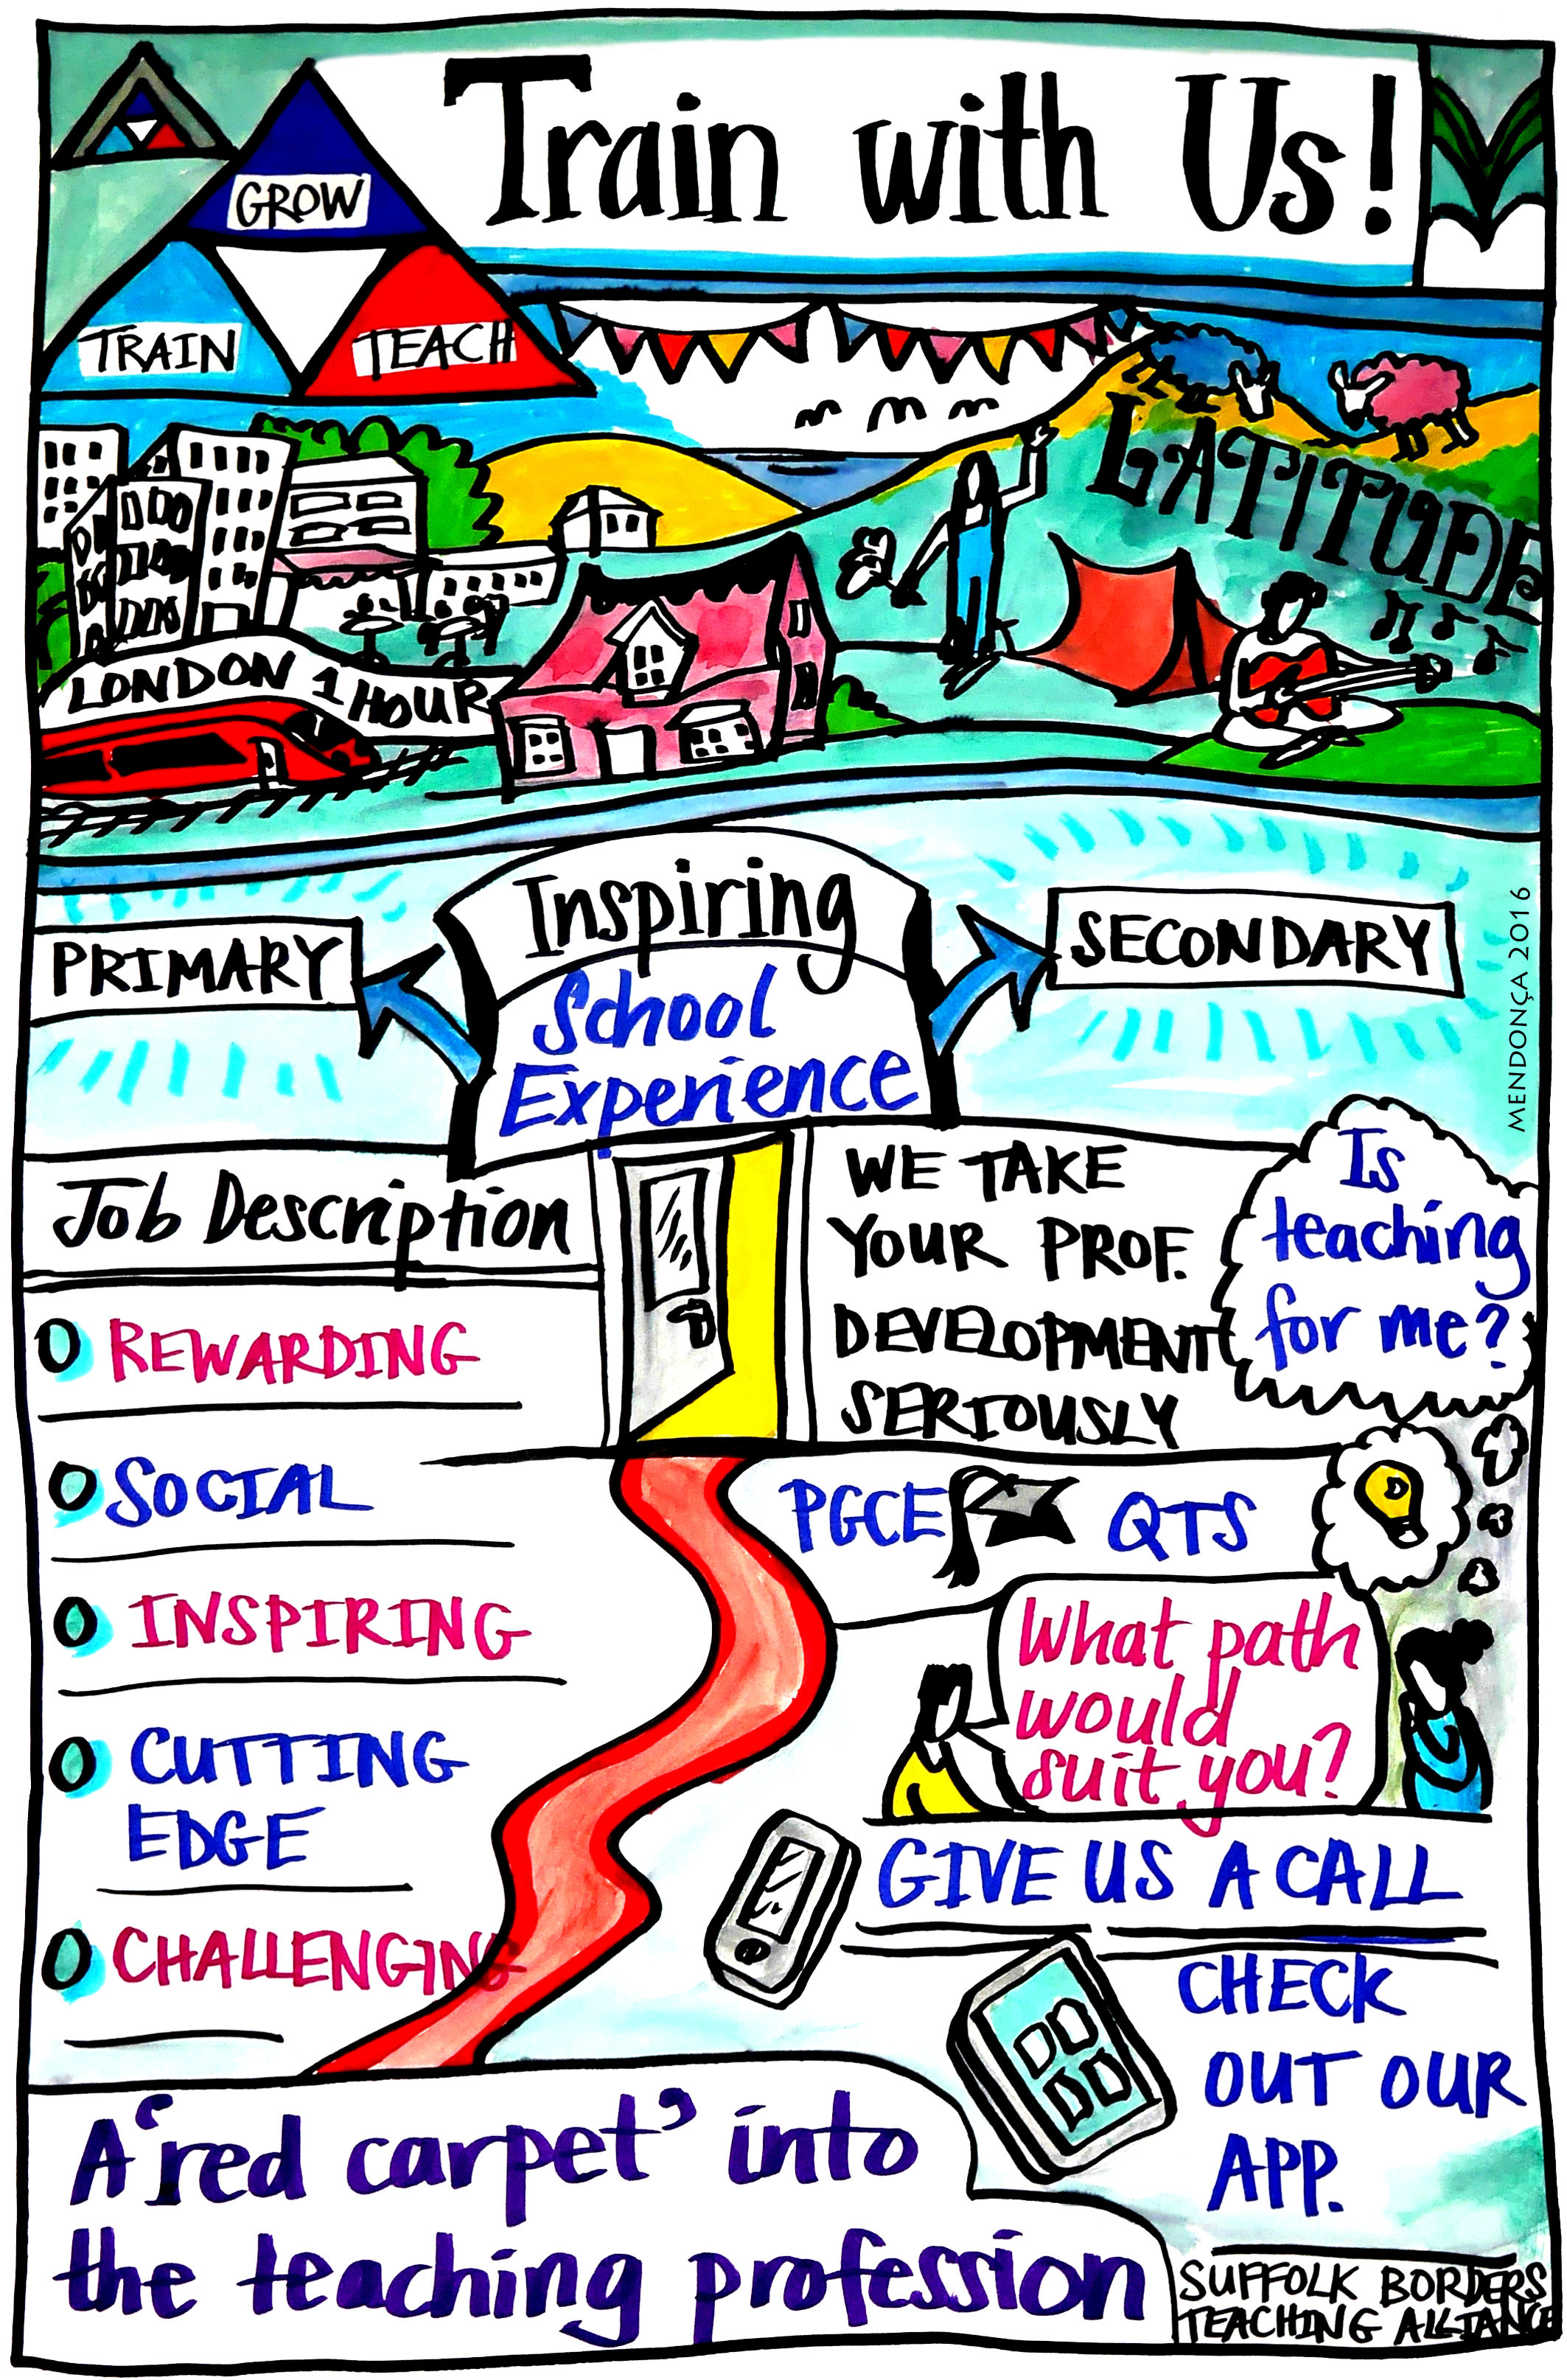 Train with Us!
GROW
TRAIN
TEACH
LATITUDE
LONDON 1 HOUR
Inspiring
School
Experience
PRIMARY
SECONDARY
MENDONÇA 2016
Job Description
REWARDING
SOCIAL
INSPIRING
CUTTING
EDGE
CHALLENGING
WE TAKE
YOUR PROF.
DEVELOPMENT
SERIOUSLY
Is
teaching
for me?
PGCE QTS
What path
would
suit you?
GIVE US A CALL
CHECK
OUT OUR
APP.
A 'red carpet' into
the teaching profession
SUFFOLK BORDERS
TEACHING ALLIANCE